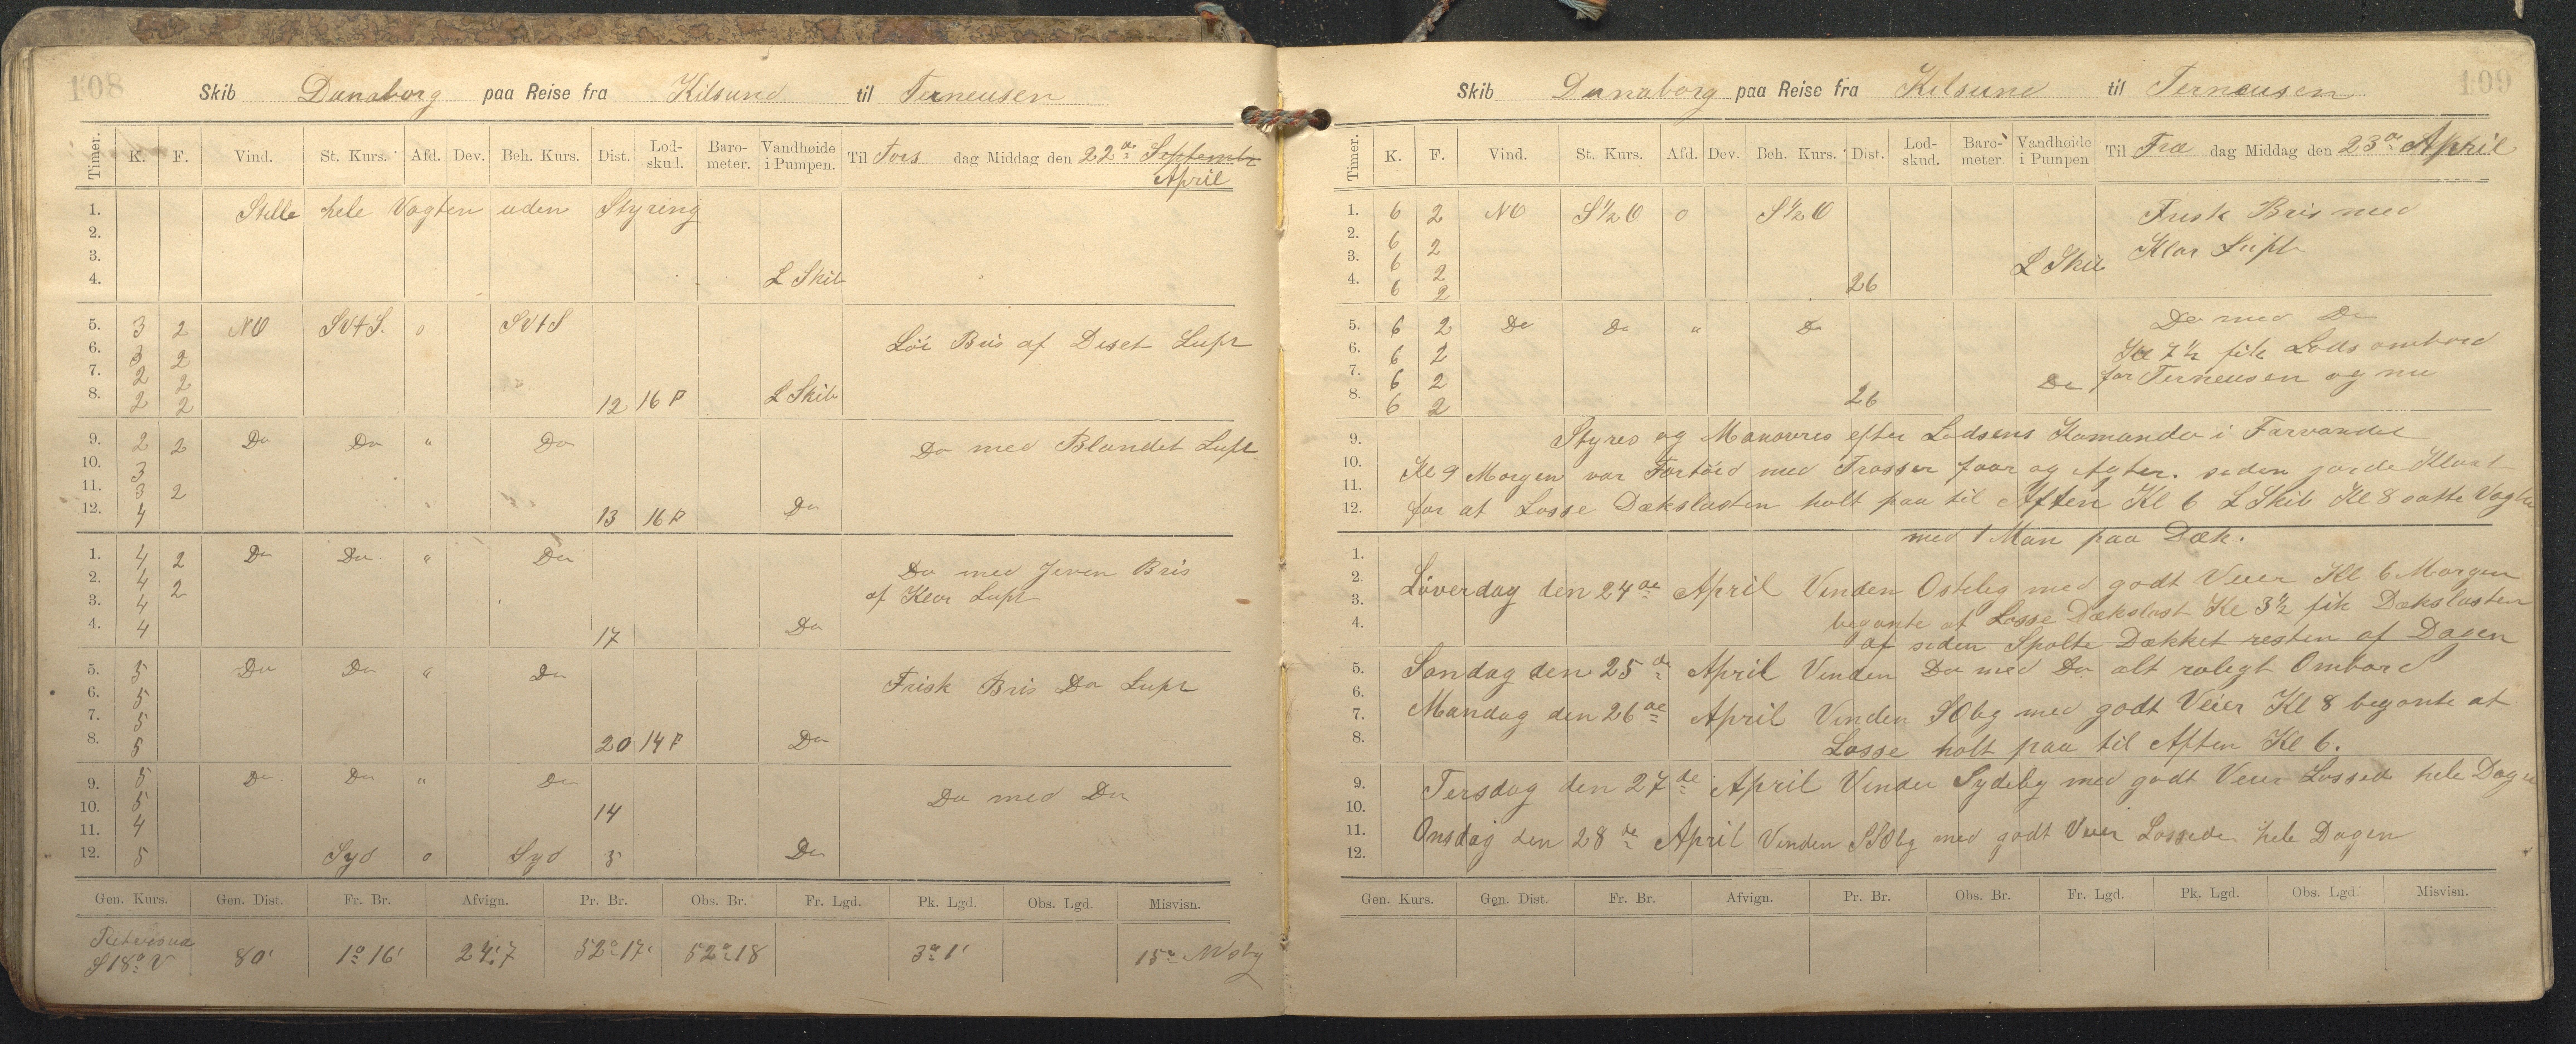 108
Skib Danaborg paa Reise fra Kilsund til Terneusen
Timer. K. F. Vind. St. Kurs. Afd. Dev. Beh. Kurs. Dist. Lod-skud. Baro-meter. Vandhøide i Pumpen. Til Tors dag Middag den 22de Septembr
April
1. Stille hele Vagten uden Styring
2.
3.
4. L Skib
5. 3 2 NO SVtS. o SVtS
6. 3 2 Löi Bris af Diset Luft
7. 2 2
8. 2 2 12 16 F L Skib
9. 2 2 Do Do " Do Do med Blandet Luft
10. 3
11. 3 2
12. 4 13 16 F Do
1. 4 2 Do Do " Do Do med Jeven Bris
2. 4 2 af Klar Luft
3. 4
4. 4 17 Do
5. 5 Do Do " Do Frisk Bris Do Luft
6. 5
7. 5
8. 5 20 14 F Do
9. 5 Do Do " Do Do med Do
10. 5 14
11. 4
12. 5 Syd o Syd 5 Do
Gen. Kurs. Gen. Dist. Fr. Br. Afvign. Pr. Br. Obs. Br. Fr. Lgd. Pk. Lgd. Obs. Lgd. Misvisn.
S18°V 80' 1° 16' 24'.7 52° 17' 52° 18 3° 1' 15°
109
Skib Danaborg paa Reise fra Kilsund til Terneusen
Timer. K. F. Vind. St. Kurs. Afd. Dev. Beh. Kurs. Dist. Lod-skud. Baro-meter. Vandhøide i Pumpen Til Fre dag Middag den 23de April
1. 6 2 NO S½O o S½O Frisk Bris med
2. 6 2 Klar Luft
3. 6 2 L Skib
4. 6 2 26
5. 6 2 Do Do " Do Do med Do
6. 6 2 Kl 7½ fik Lods ombord
7. 6 2 Do for Terneusen og nu
8. 6 2 26
9. Styres og Manovres efter Lodsens Komando i Farvandet
10. Kl 9 Morgen var Fortöid med Trosser foor og Agter. siden gorde Klart
11.
12. for at Losse Dækslasten holt paa til Aften Kl 6 L Skib Kl 8 satte Vagten
med 1 Man paa Dæk.
1.
2. Löverdag den 24de April Vinden Ostlig med godt Veier Kl 6 Morgen
3. begonte at Losse Dækslast Kl 3½ fik Dækslasten
4. af siden Spolte Dækket resten af Dagen
5. Sondag den 25de April Vinden Do med Do alt roligt Ombord
6.
7. Mandag den 26de April Vinden SOlig med godt Veier Kl 8 begonte at
8. Losse holt paa til Aften Kl 6.
9. Tersdag den 27de April Vinden Sydelig med godt Veier Lossede hele Dagen
10.
11. Onsdag den 28de April Vinden SSOlig med godt Veier Lossede hele Dagen
12.
Gen. Kurs. Gen. Dist. Fr. Br. Afvign. Pr. Br. Obs. Br. Fr. Lgd. Pk. Lgd. Obs. Lgd. Misvisn.